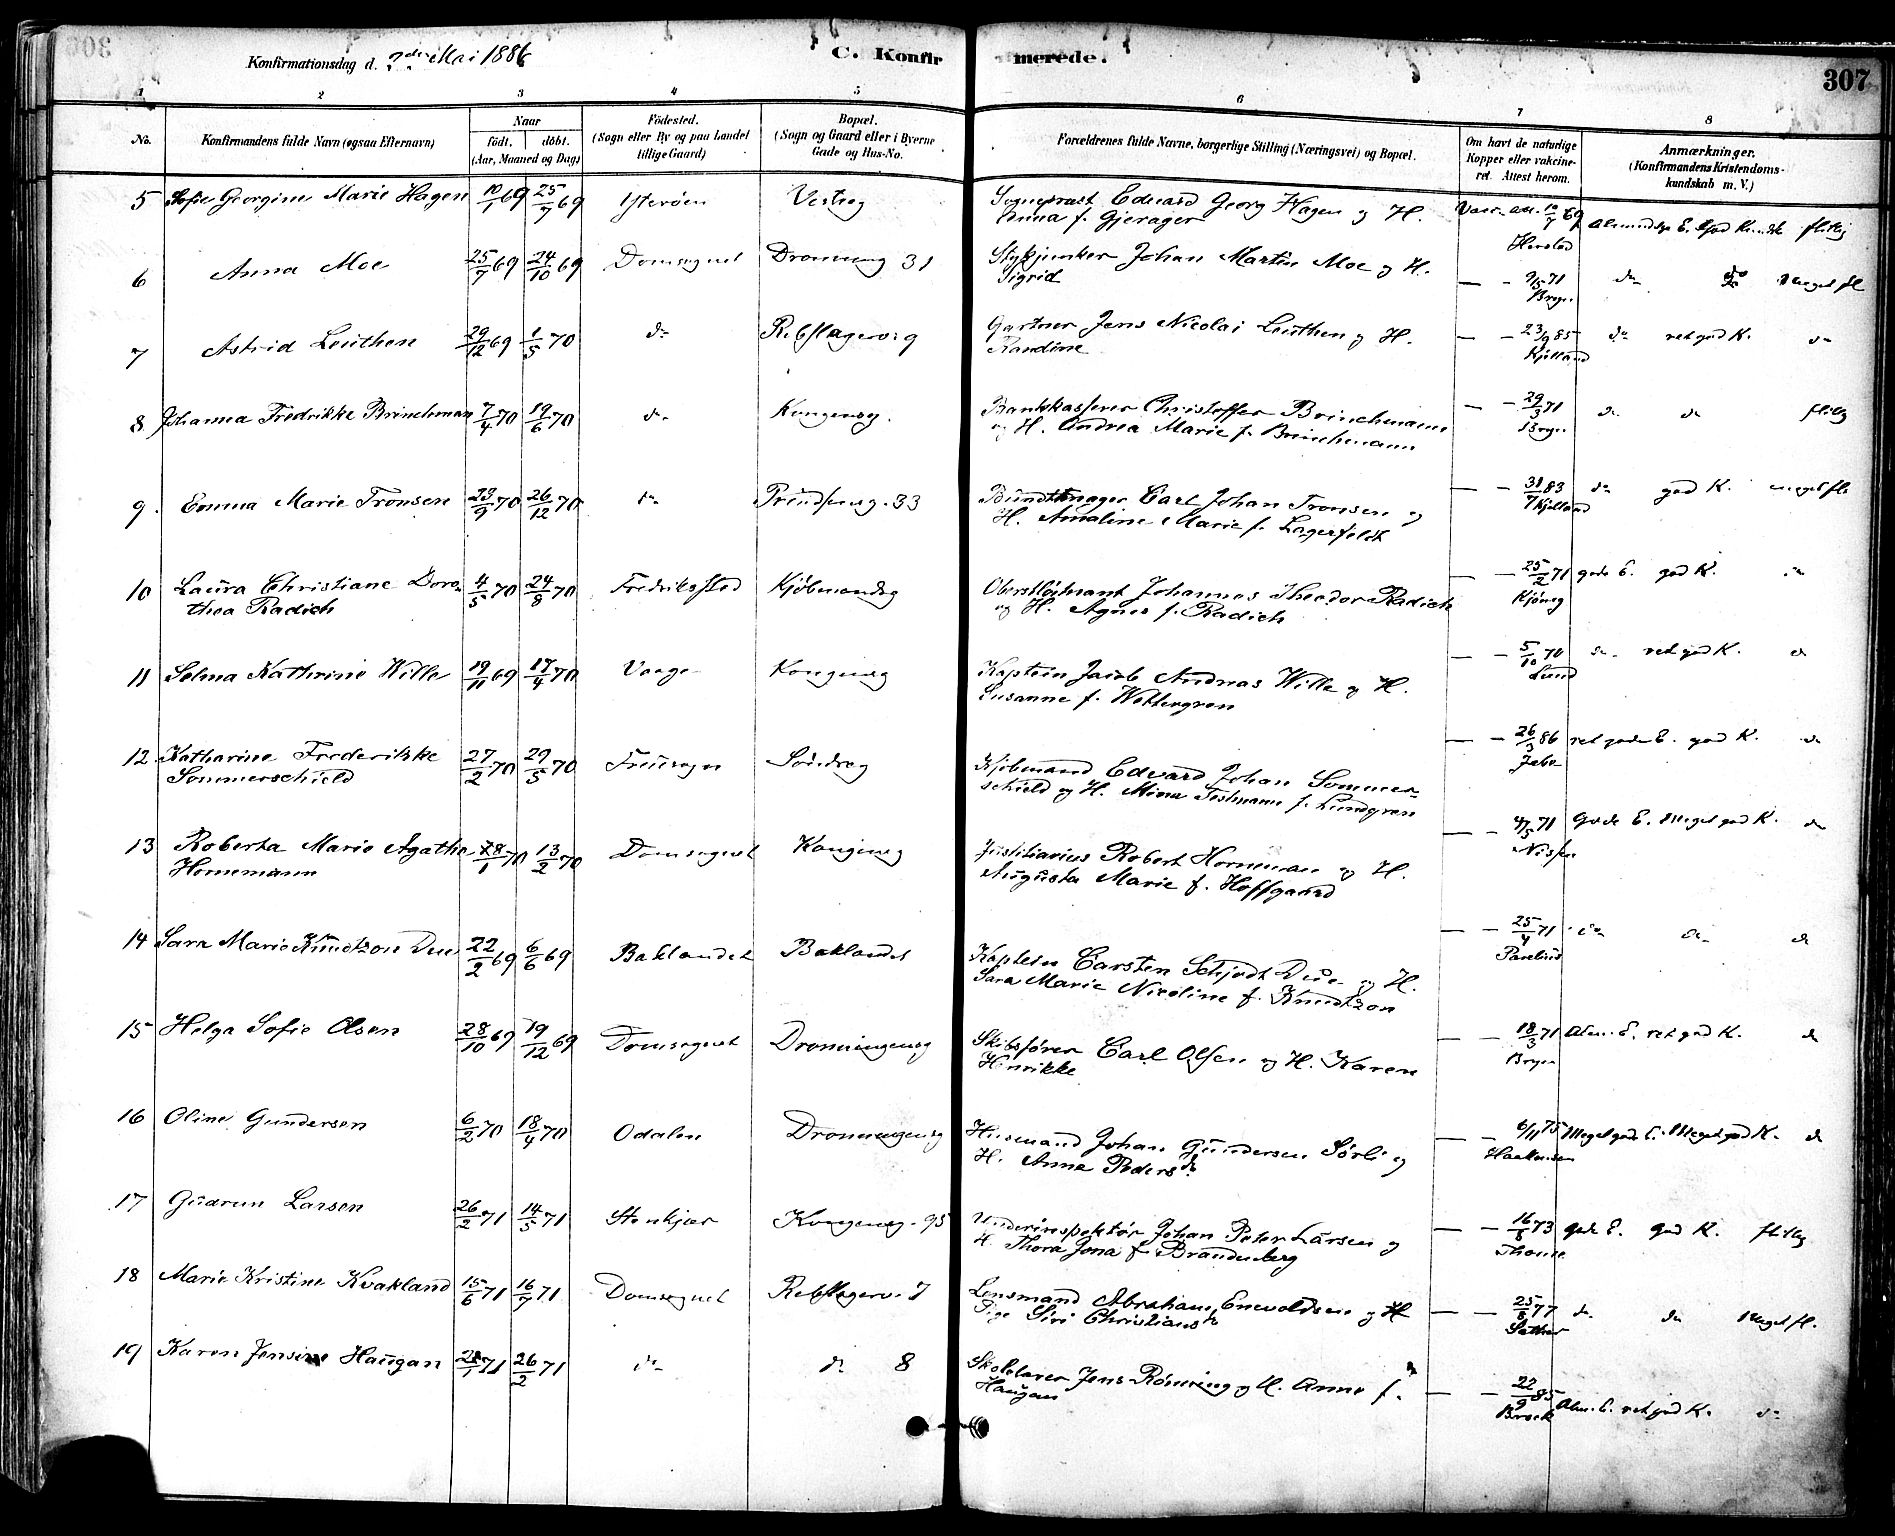 307
Konfirmationsdag d. 2den Mai 1886
C. Konfirmerede.
1 2 3 4 5 6 7 8
No. Konfirmandens fulde Navn (ogsaa Efternavn) Naar födt. döbt. (Aar, Maaned og Dag) Födested. (Sogn eller By og paa Landet tillige Gaard) Bopæl. (Sogn og Gaard eller i Byerne Gade og Hus-No. Forældrenes fulde Navne, borgerlige Stilling (Næringsvei) og Bopæl. Om havt de naturlige Kopper eller vakcineret. Attest herom. Anmærkninger. (Konfirmandens Kristendomskundskab m. V.)
5 Sofie Georgine Marie Hagen 10/1 69 25/7 69 Ytterøen Sognepræst Edvard Georg Hagen og H.
Anna f. Gjerager 10/7 69 flittig
6 Anna Moe 25/7 69 24/10 69 Domsognet Dronning 31 Stykjunker Johan Martin Moe og H.
Sigrid 9/5 71 do do Meget fl
7 Astrid Leuthen 29/12 69 1/5 70 do Rebslagerv. 9 Gartner Jens Nicolai Leuthen og H.
Randine 23/9 85 Kjelland do ret god K. do
8 Johanna Fredrikke Brinchman 7/4 70 19/6 70 do Kongensg. Bankkasserer Christoffer Brinchmann
og H. Andrea Marie f. Brinchmann 29/3 71 do do flittig
9. Emma Marie Tronsen 23/9 70 26/12 70 do Prindsensg. 33 Bundtmager Carl Johan Tronsen og
H. Amaline Marie f. Lagerfeldt 31/7 83 Kjelland do god K. meget fl
10 Laura Christiane Doro-
thea Radich 4/5 70 24/8 70 Fredriksstad Kjøbmandsg Oberstløitnant Johannes Theodor Radich
og H. Agnes f. Radich 25/2 71 gode E. god K. do
11 Selma Kathrine Wille 19/11 69 17/4 70 Vaage Kongensg Kaptein Jacob Andreas Wille og H.
Susanne f. Wettergren 5/10 70 Lund do ret god K. do
12 Katharine Frederikke
Sommerschield 27/2 70 29/5 70 Fruesogn Søndreg Kjøbmand Edvard Johan Sommer-
schield og H. Mina Testmann f. Lundgren 26/3 86 ret gode E. god K. do
13 Roberta Marie Agathe
Hornemann 28/1 70 13/2 70 Domsognet Kongensg Justitiarius Robert Horneman og H.
Augusta Marie f. Hoffgaard 4/5 71 Gode E. Meget god K. do
14 Sara Marie Knudtzon Due 22/2 69 6/6 69 Baklandet Baklandet Kaptein Carsten Schjødt Due og H.
Sara Marie Nicoline f. Knudtzon 25/4 71 Parelius do do do
15 Helga Sofie Olsen 28/10 69 19/12 69 Domsognet Dronningensg Skibsfører Carl Olsen og H. Karen
Henrikke 18/3 71 Alm. E. ret god K. do
16 Oline Gundersen 6/2 70 18/4 70 Odalen Dronningensg Husmand Johan Gundersen Sørli og
H. Anne Peders d. 6/11 75 Meget gode E. Meget god K. do
17 Gudrun Larsen 26/2 71 14/5 71 Stenkjær Kongensg. 95 Underinspektør Johan Peter Larsen og
H. Thora Jona f. Brandenberg 16/6 73 gode E. god K. flittig
18 Marie Kristine Kvakland 15/6 71 16/7 71 Domsognet Rebslagerv. 7 Lensmand Abraham Enevoldsen og H
Pige Siri Christians d. 25/8 77 do do Meget fl.
19 Karen Jensine Haugan 26/2 71 do do 8 Skolelærer Jens Rönning og H. Anne f.
Haugan 22/9 85 Alm. E. ret god K. do